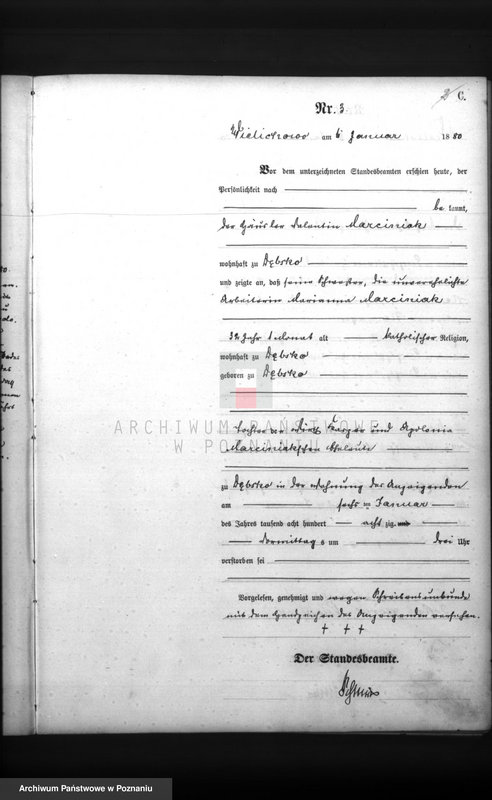 C.
Nr. 3
Wielichowo am 6 Januar 1880
Vor dem unterzeichneten Standesbeamten erschien heute, der
Persönlichkeit nach
be kannt,
der Häusler Valentin Marciniak
wohnhaft zu Dębsko
und zeigte an, daß seine Schwester, die unverehelichte
Arbeiterin Marianna Marciniak
32 Jahr 1 Monat alt katholischer Religion,
wohnhaft zu Dębsko
geboren zu Dębsko
ARCHIWUM PAŃSTWOWE
W POZNANIU
Tochter der Kaspar und Apolonia
Marciniakschen Eheleute
zu Dębsko in der Wohnung des Anzeigenden
am sechsten Januar
des Jahres tausend acht hundert acht zig
Vormittags um drei Uhr
verstorben sei
Vorgelesen, genehmigt und wegen Schreibensunkunde
mit dem Handzeichen des Anzeigenden versehen.
† † †
Der Standesbeamte.
Archiwum Państwowe w Poznaniu